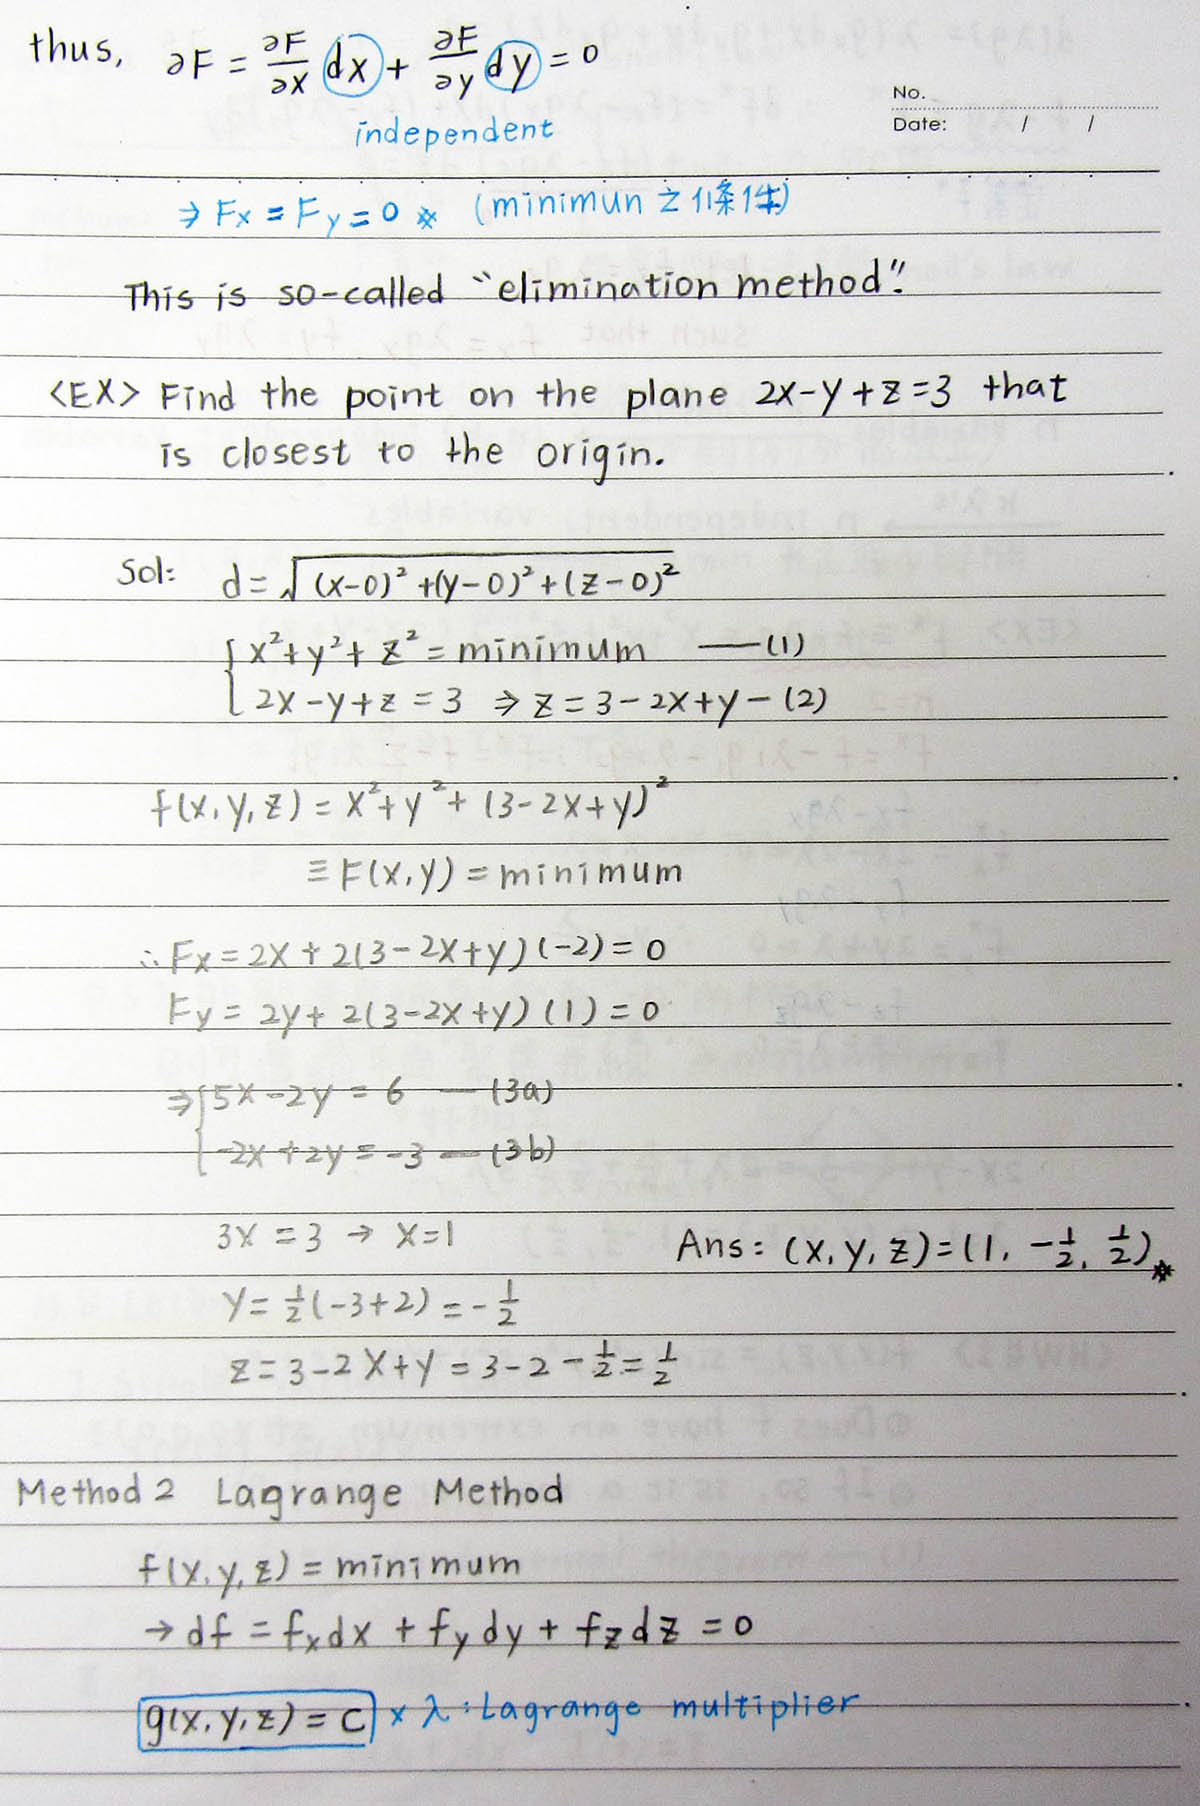 thus, ∂F = ∂F/∂x dx + ∂F/∂y dy = 0
No.
Date: / /
independent
⇒ Fx = Fy = 0 * (minimun 之條件)
This is so-called "elimination method".
<EX> Find the point on the plane 2x-y+z=3 that
is closest to the origin.
Sol: d = √(x-0)²+(y-0)²+(z-0)²
x²+y²+z² = minimum —(1)
2x-y+z = 3 ⇒ z = 3-2x+y -(2)
f(x,y,z) = x²+y²+(3-2x+y)²
≡ F(x,y) = minimum
∴ Fx = 2x + 2(3-2x+y)(-2) = 0
Fy = 2y + 2(3-2x+y)(1) = 0
⇒ 5x-2y = 6 — (3a)
-2x+2y = -3 — (3b)
3x = 3 → x=1
Ans: (x,y,z)=(1, -1/2, 1/2)*
y = 1/2(-3+2) = -1/2
z = 3-2x+y = 3-2-1/2 = 1/2
Method 2 Lagrange Method
f(x,y,z) = minimum
→ df = fxdx + fydy + fzdz = 0
g(x,y,z) = c × λ: Lagrange multiplier